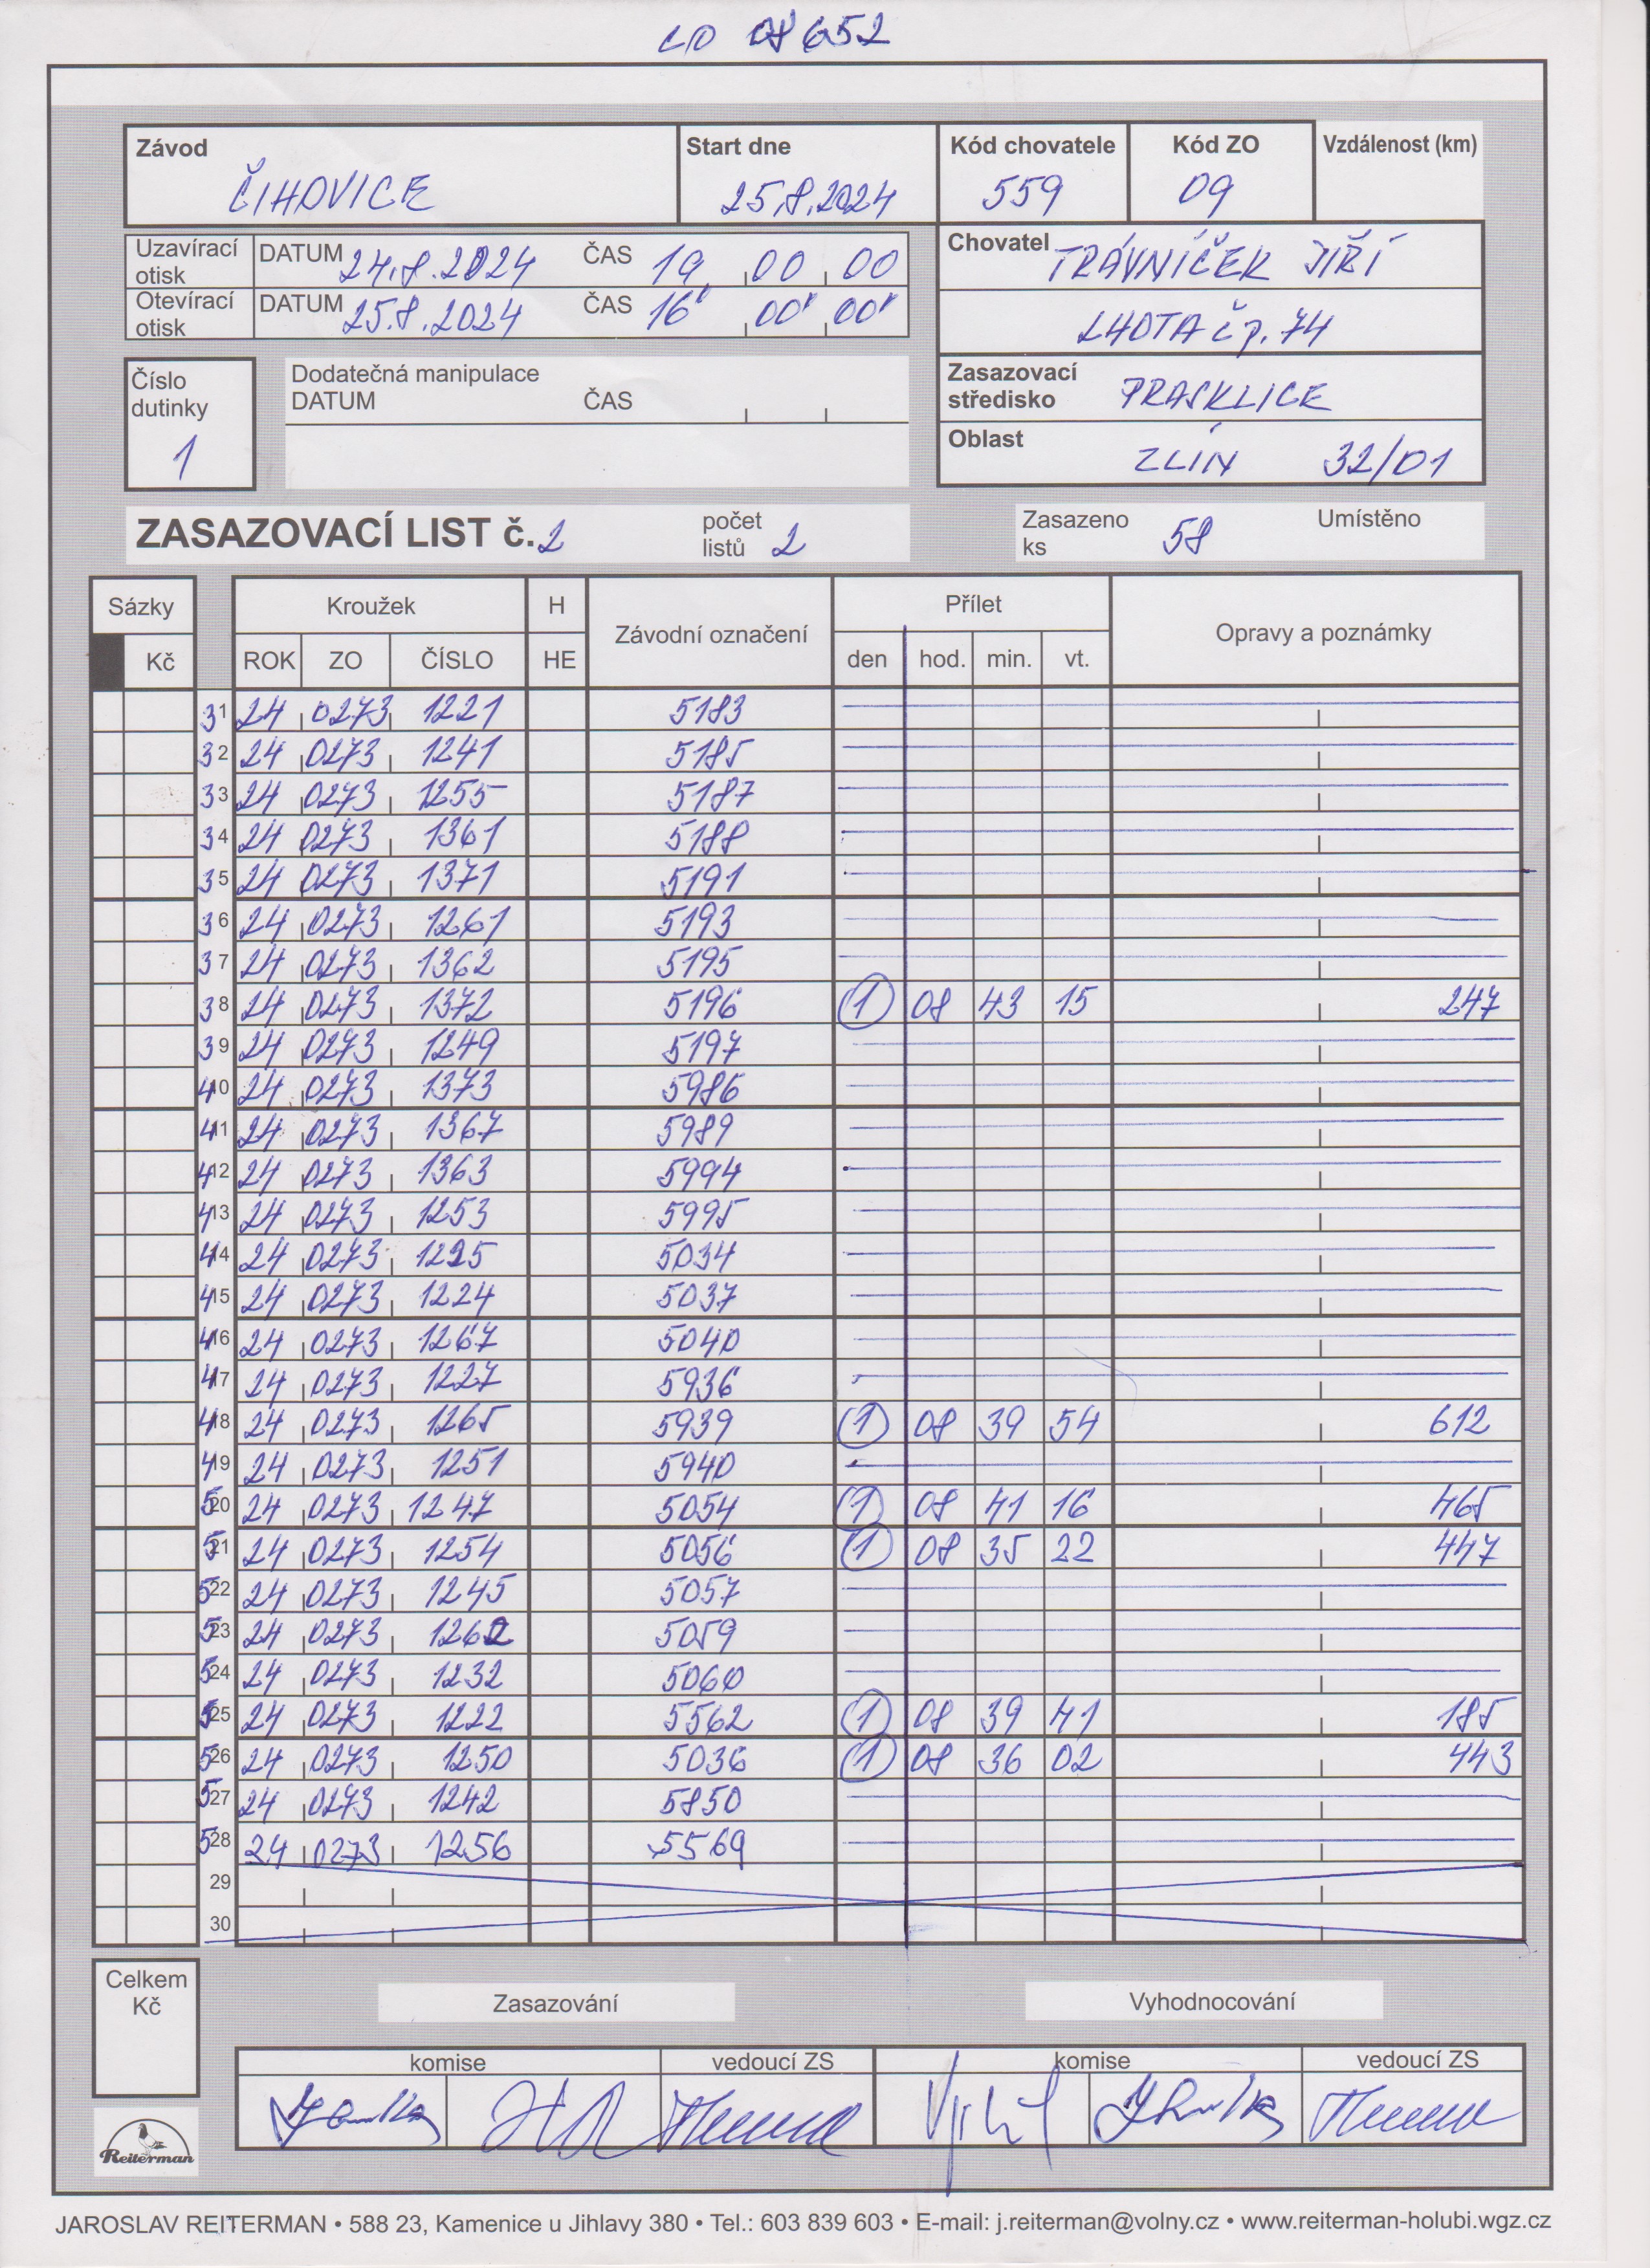 LD 08652
Závod Start dne Kód chovatele Kód ZO Vzdálenost (km)
ČIHOVICE 25.8.2024 559 09
Uzavírací otisk DATUM 24.8.2024 ČAS 19 00 00
Otevírací otisk DATUM 25.8.2024 ČAS 16 00 00
Chovatel TRÁVNÍČEK JIŘÍ
LHOTA čp. 74
Číslo dutinky 1
Dodatečná manipulace
DATUM ČAS
Zasazovací středisko PRASKLICE
Oblast ZLÍN 32/01
ZASAZOVACÍ LIST č. 2 počet listů 2 Zasazeno ks 58 Umístěno
Sázky Kroužek H Závodní označení Přílet Opravy a poznámky
Kč ROK ZO ČÍSLO HE den hod. min. vt.
31 24 0273 1221 5183
32 24 0273 1241 5185
33 24 0273 1255 5187
34 24 0273 1361 5188
35 24 0273 1371 5191
36 24 0273 1261 5193
37 24 0273 1362 5195
38 24 0273 1372 5196 1 08 43 15 247
39 24 0273 1249 5197
40 24 0273 1373 5986
41 24 0273 1367 5989
42 24 0273 1363 5994
43 24 0273 1253 5995
44 24 0273 1225 5034
45 24 0273 1224 5037
46 24 0273 1267 5040
47 24 0273 1227 5936
48 24 0273 1265 5939 1 08 39 54 612
49 24 0273 1251 5940
50 24 0273 1247 5054 1 08 41 16 465
51 24 0273 1254 5056 1 08 35 22 447
52 24 0273 1245 5057
53 24 0273 1262 5059
54 24 0273 1232 5060
55 24 0273 1222 5562 1 08 39 41 185
56 24 0273 1250 5036 1 08 36 02 443
57 24 0273 1242 5850
58 24 0273 1256 5569
29
30
Celkem Kč
Zasazování Vyhodnocování
komise vedoucí ZS komise vedoucí ZS
Reiterman
JAROSLAV REITERMAN • 588 23, Kamenice u Jihlavy 380 • Tel.: 603 839 603 • E-mail: j.reiterman@volny.cz • www.reiterman-holubi.wgz.cz